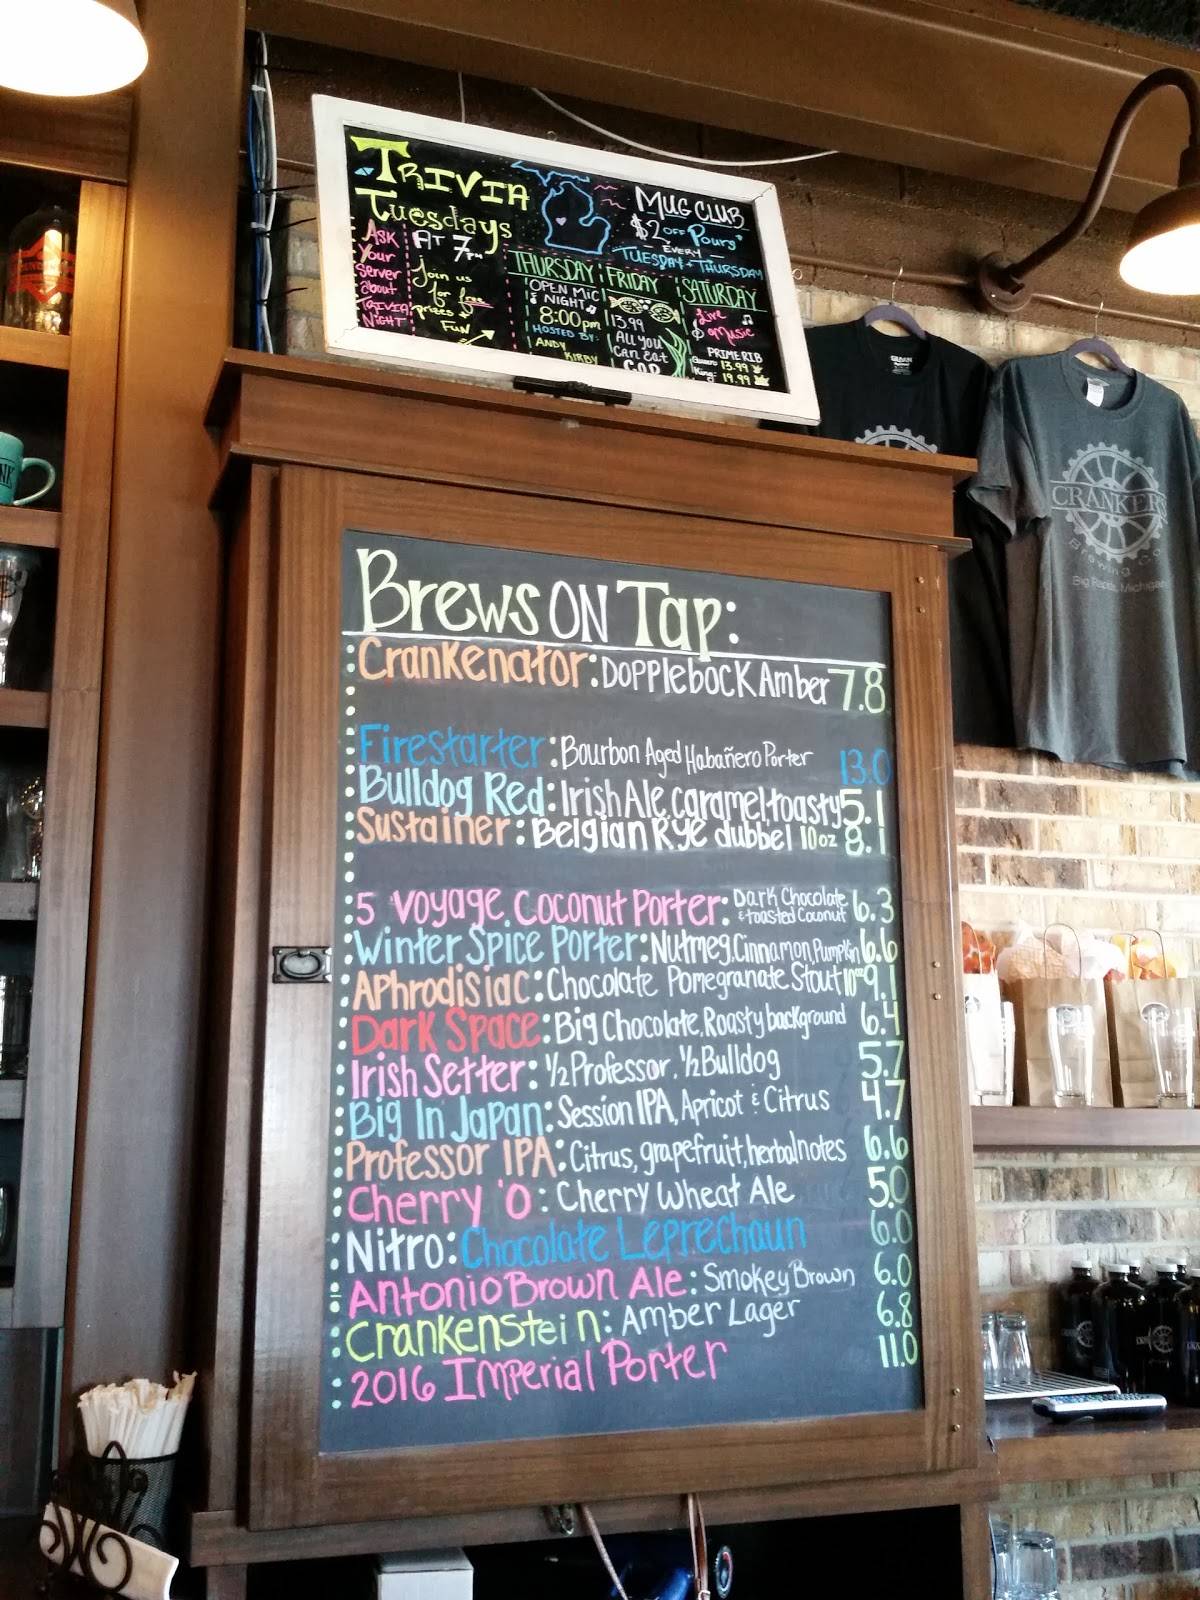 Trivia
Tuesdays
At 7pm
Ask
Your
Server
about
Trivia
Night
Join us
for free
prizes &
Fun
Mug Club
$2 off Pours
Every
Tuesday + Thursday
Thursday
Open Mic
Night
8:00pm
Hosted By:
Andy
Kirby
Friday
13.99
All You
Can Eat
Cod
Saturday
Live
Music
Prime Rib
Queen: 13.99
King: 19.99
CRANKER'S
Brewing Co
Big Rapids, Michigan
Brews on Tap:
Crankenator: Dopplebock Amber 7.8
Firestarter: Bourbon Aged Habañero Porter 13.0
Bulldog Red: Irish Ale, caramel, toasty 5.1
Sustainer: Belgian Rye dubbel 10oz 8.1
5 Voyage Coconut Porter: Dark Chocolate & toasted Coconut 6.3
Winter Spice Porter: Nutmeg, Cinnamon, Pumpkin 6.6
Aphrodisiac: Chocolate Pomegranate Stout 10oz 9.1
Dark Space: Big Chocolate, Roasty background 6.4
Irish Setter: ½ Professor, ½ Bulldog 5.7
Big In Japan: Session IPA, Apricot & Citrus 4.7
Professor IPA: Citrus, grapefruit, herbal notes 6.6
Cherry 'O: Cherry Wheat Ale 5.0
Nitro: Chocolate Leprechaun 6.0
Antonio Brown Ale: Smokey Brown 6.0
Crankenstein: Amber Lager 6.8
2016 Imperial Porter 11.0